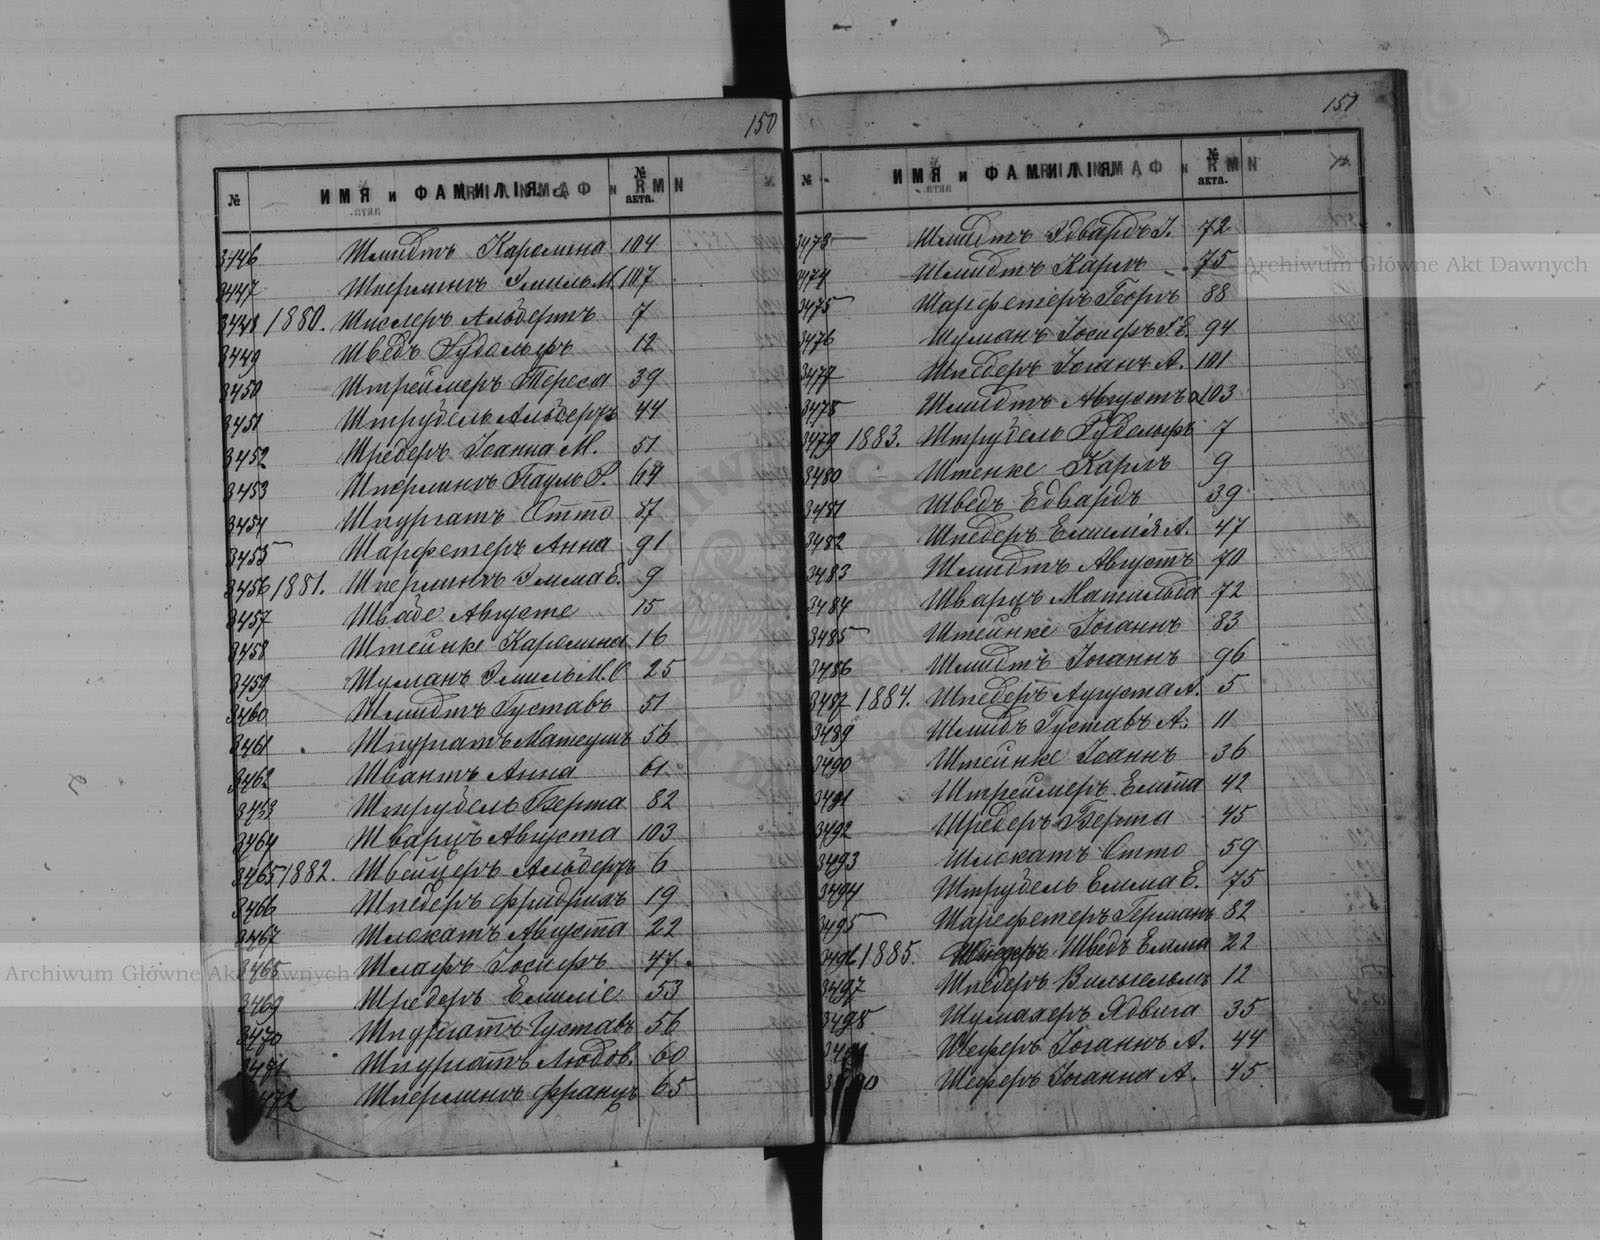 150
№ ИМЯ и ФАМИЛІЯ. № акта.
3446 Шмидтъ Каролина 104
3447 Шперлингъ Эмиль М. 107
3448 1880. Шислеръ Альбертъ 7
3449 Шведъ Рудольфъ 12
3450 Штреймеръ Тереса 39
3451 Штрубель Альбертъ 44
3452 Шредеръ Іоанна М. 51
3453 Шперлингъ Пауль Р. 69
3454 Шпургатъ Отто 87
3455 Шарфетеръ Анна 91
3456 1881. Шперлингъ Эмма Е. 9
3457 Швабе Августе 15
3458 Штейнке Каролина 16
3459 Шуманъ Эмиль М. О. 25
3460 Шмидтъ Густавъ 51
3461 Шпургатъ Матеушъ 56
3462 Швантъ Анна 61
3463 Штрубель Берта 82
3464 Шварцъ Августа 103
3465 1882. Швейцеръ Альбертъ 6
3466 Шпедеръ Фридрихъ 19
3467 Шлокатъ Августа 22
3468 Шлафъ Іосифъ 47
3469 Шредеръ Емиліе 53
3470 Шпургатъ Густавъ 56
3471 Шпургатъ Людов. 60
3472 Шперлингъ Францъ 65
151
№ ИМЯ и ФАМИЛІЯ. № акта.
3473 Шмидтъ Эдвардъ І. 72
3474 Шмидтъ Карлъ 75
3475 Шарфетеръ Георгъ 88
3476 Шуманъ Іосифъ Г. Е. 94
3477 Шпедеръ Іоганъ А. 101
3478 Шмидтъ Августъ 103
3479 1883. Штрубель Рудольфъ 7
3480 Штенке Карлъ 9
3481 Шведъ Едвардъ 39
3482 Шпедеръ Емилія А. 47
3483 Шмидтъ Августъ 70
3484 Шварцъ Матильда 72
3485 Штейнке Іоганнъ 83
3486 Шмидтъ Іоганнъ 96
3487 1884. Шпедеръ Аугуста А. 5
3489 Шмидъ Густавъ А. 11
3490 Штейнке Іоаннъ 36
3491 Штреймеръ Емма 42
3492 Шредеръ Берта 45
3493 Шлокатъ Отто 59
3494 Штрубель Емма Е. 75
3495 Шарфетеръ Германъ 82
3496 1885. Шведъ Емма 22
3497 Шпедеръ Вильгельмъ 12
3498 Шумахеръ Ядвига 35
Шеферъ Іоганнъ А. 44
Шеферъ Іоганна А. 45
Archiwum Główne Akt Dawnych
Archiwum Główne Akt Dawnych